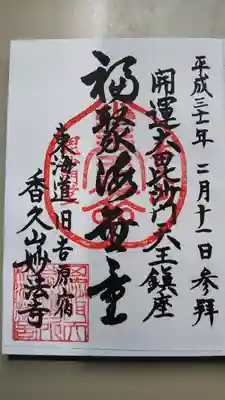 平成三十一年 二月十一日 参拝
開運大毘沙門天王鎮座
福聚海無量
東海道旧吉原宿
香久山妙法寺